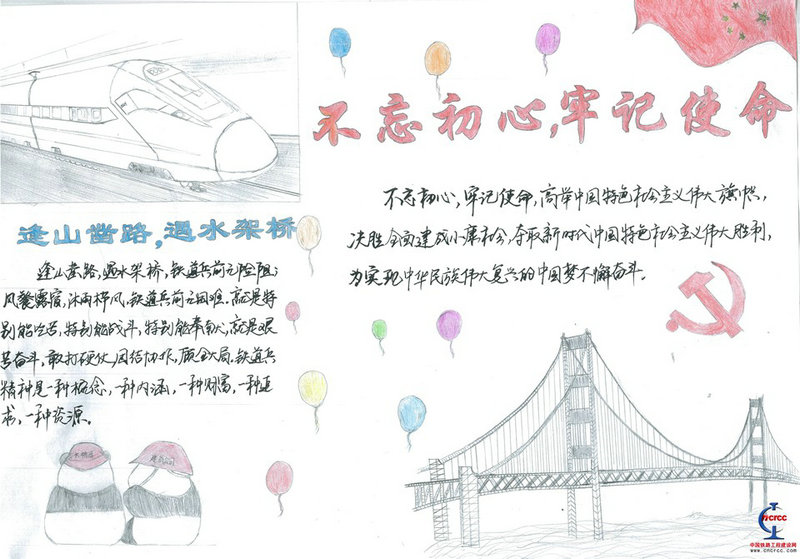 不忘初心,牢记使命
不忘初心,牢记使命,高举中国特色社会主义伟大旗帜,
决胜全面建成小康社会,夺取新时代中国特色社会主义伟大胜利,
为实现中华民族伟大复兴的中国梦不懈奋斗.
逢山凿路,遇水架桥
逢山凿路,遇水架桥,铁道兵前无险阻;
风餐露宿,沐雨栉风,铁道兵前无困难.就是特
别能吃苦,特别能战斗,特别能奉献,就是艰
苦奋斗,敢打硬仗,团结协作,顾全大局.铁道兵
精神是一种概念,一种内涵,一种财富,一种追
求,一种资源。
CRCC
中国铁路工程建设网
www.cncrcc.com